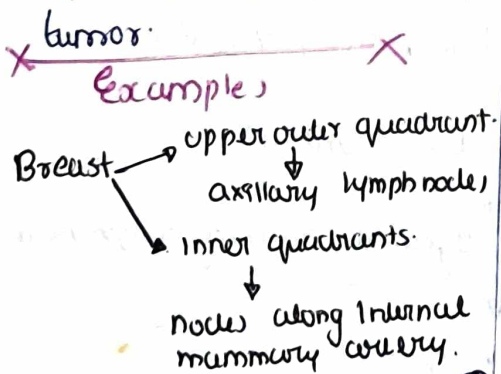 tumor.
Examples
upper outer quadrant.
Breast
axillary lymph nodes
inner quadrants.
nodes along Internal
mammary artery.